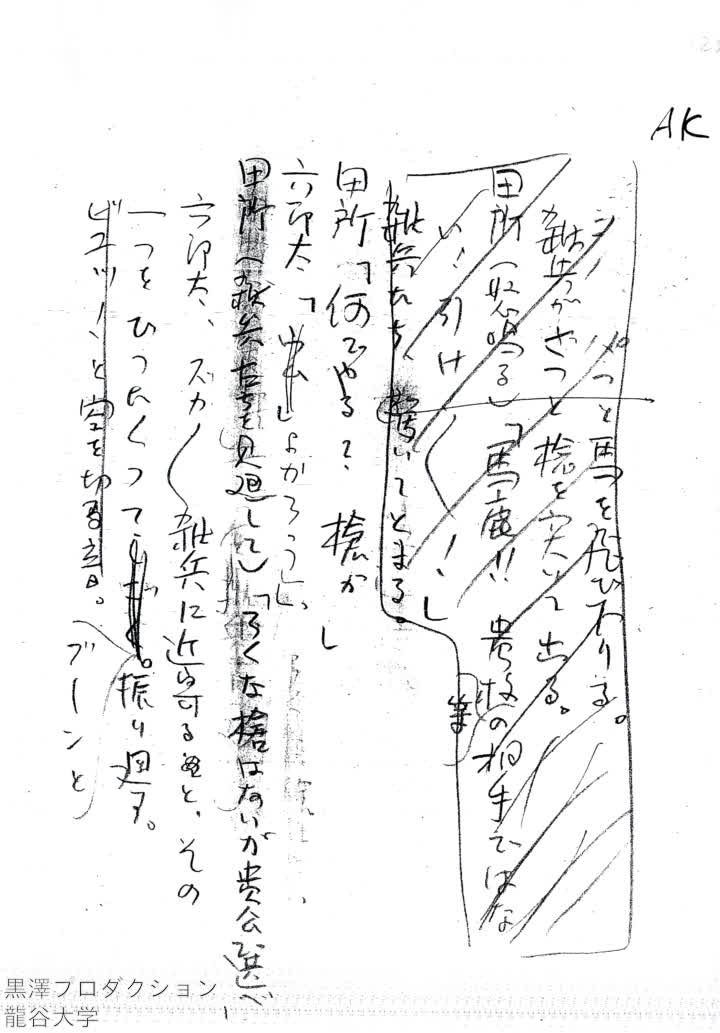 AK
ぱっと馬を飛びおりる。
雑兵がさっと槍を突いて出る。
田所（怒鳴る）「馬鹿!! 貴様の相手ではな
い！引け〱！」
雑兵たち、驚いてとまる。
田所「何でやる？ 槍か」
六郎太「よかろう」
田所（雑兵たちを見廻して）「ろくな槍はないが貴公選べ」
六郎太、ズカ〱雑兵に近寄ると、その
一つをひったくって。振り廻す。
ブーンと
ビュッ！と空を切る音。
黒澤プロダクション
龍谷大学